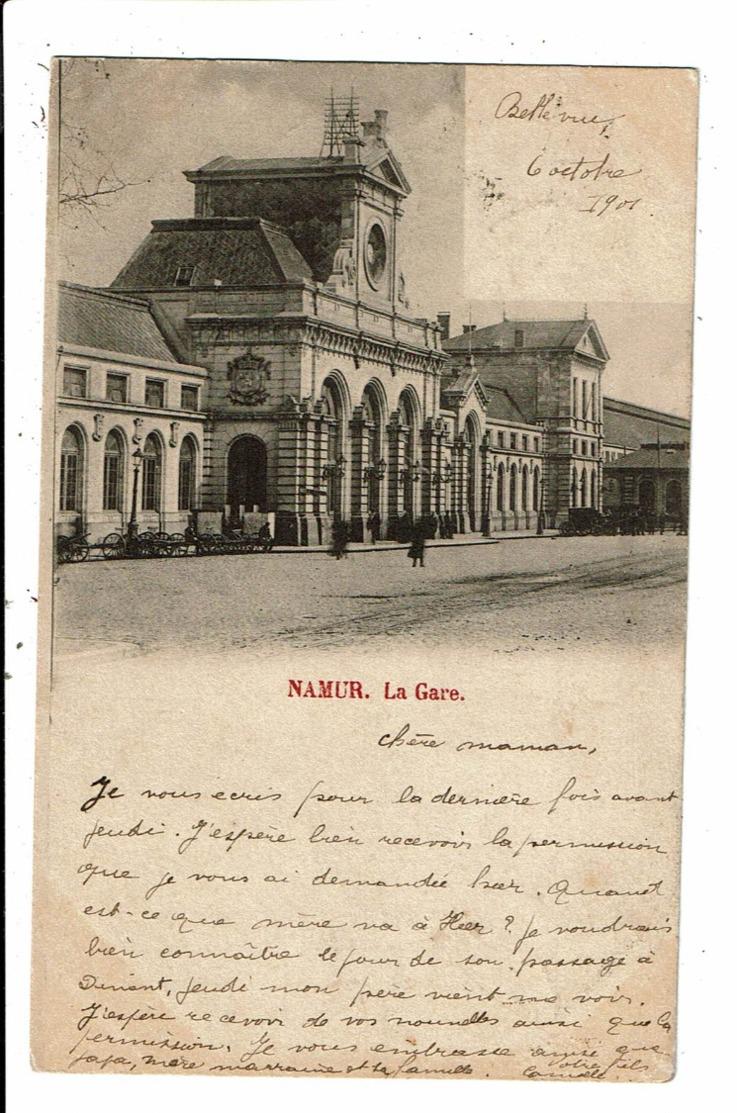 Bellevue,
6 octobre
1901
NAMUR. La Gare.
chère maman,
Je vous ecris pour la dernière fois avant
jeudi. J'espère bien recevoir la permission
que je vous ai demandée hier. Quand
est-ce que mère va à Heer? Je voudrais
bien connaître le jour de son passage à
Dinant, jeudi mon père vient me voir.
J'espère recevoir de vos nouvelles ainsi que la
permission. Je vous embrasse ainsi que
papa, mère marraine et la famille. votre fils
Camille.